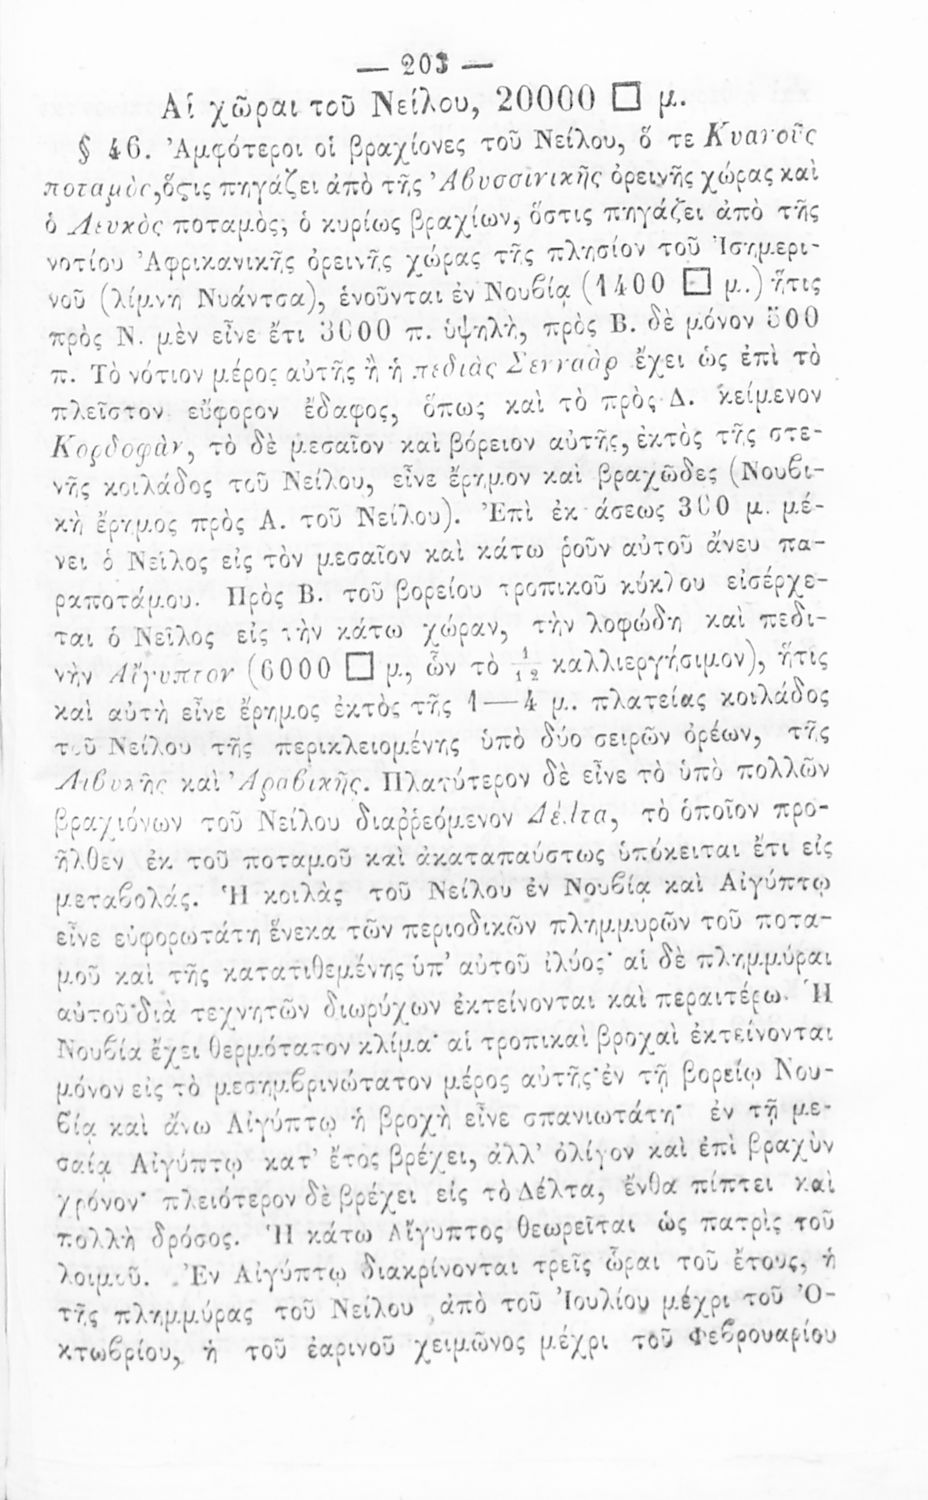 — 203 —
Αἱ χῶραι τοῦ Νείλου, 20000 □ μ.
§ 46. Ἀμφότεροι οἱ βραχίονες τοῦ Νείλου, ὅ τε Κυανοῦς
ποταμὸς, ὅςτις πηγάζει ἀπὸ τῆς Ἀβυσσινικῆς ὀρεινῆς χώρας καὶ
ὁ Λευκὸς ποταμὸς, ὁ κυρίως βραχίων, ὅστις πηγάζει ἀπὸ τῆς
νοτίου Ἀφρικανικῆς ὀρεινῆς χώρας τῆς πλησίον τοῦ Ἰσημερι-
νοῦ (λίμνη Νυάντσα), ἑνοῦνται ἐν Νουβίᾳ (1400 □ μ.) ἥτις
πρὸς Ν. μὲν εἶνε ἔτι 3000 π. ὑψηλὴ, πρὸς Β. δὲ μόνον 500
π. Τὸ νότιον μέρος αὐτῆς ἢ ἡ πεδιὰς Σενναὰρ ἔχει ὡς ἐπὶ τὸ
πλεῖστον εὔφορον ἔδαφος, ὅπως καὶ τὸ πρὸς Δ. κείμενον
Κορδοφὰν, τὸ δὲ μεσαῖον καὶ βόρειον αὐτῆς, ἐκτὸς τῆς στε-
νῆς κοιλάδος τοῦ Νείλου, εἶνε ἔρημον καὶ βραχῶδες (Νουβι-
κὴ ἔρημος πρὸς Α. τοῦ Νείλου). Ἐπὶ ἐκ άσεως 300 μ. μέ-
νει ὁ Νεῖλος εἰς τὸν μεσαῖον καὶ κάτω ῥοῦν αὐτοῦ ἄνευ πα-
ραποτάμου. Πρὸς Β. τοῦ βορείου τροπικοῦ κύκλου εἰσέρχε-
ται ὁ Νεῖλος εἰς τὴν κάτω χώραν, τὴν λοφώδη καὶ πεδι-
νὴν Αἴγυπτον (6000 □ μ, ὧν τὸ 1/12 καλλιεργήσιμον), ἥτις
καὶ αὐτὴ εἶνε ἔρημος ἐκτὸς τῆς 1—4 μ. πλατείας κοιλάδος
τοῦ Νείλου τῆς περικλειομένης ὑπὸ δύο σειρῶν ὀρέων, τῆς
Λιβυκῆς καὶ Ἀραβικῆς. Πλατύτερον δὲ εἶνε τὸ ὑπὸ πολλῶν
βραχιόνων τοῦ Νείλου διαῤῥεόμενον Δέλτα, τὸ ὁποῖον προ-
ῆλθεν ἐκ τοῦ ποταμοῦ καὶ ἀκαταπαύστως ὑπόκειται ἔτι εἰς
μεταβολάς. Ἡ κοιλὰς τοῦ Νείλου ἐν Νουβίᾳ καὶ Αἰγύπτῳ
εἶνε εὐφορωτάτη ἕνεκα τῶν περιοδικῶν πλημμυρῶν τοῦ ποτα-
μοῦ καὶ τῆς κατατιθεμένης ὑπ’ αὐτοῦ ἰλύος· αἱ δὲ πλημμύραι
αὐτοῦ διὰ τεχνητῶν διωρύχων ἐκτείνονται καὶ περαιτέρω. Ἡ
Νουβία ἔχει θερμότατον κλίμα· αἱ τροπικαὶ βροχαὶ ἐκτείνονται
μόνον εἰς τὸ μεσημβρινώτατον μέρος αὐτῆς· ἐν τῇ βορείῳ Νου-
βίᾳ καὶ ἄνω Αἰγύπτῳ ἡ βροχὴ εἶνε σπανιωτάτη· ἐν τῇ με-
σαίᾳ Αἰγύπτῳ κατ’ ἔτος βρέχει, ἀλλ’ ὀλίγον καὶ ἐπὶ βραχὺν
χρόνον· πλειότερον δὲ βρέχει εἰς τὸ Δέλτα, ἔνθα πίπτει καὶ
πολλὴ δρόσος. Ἡ κάτω Αἴγυπτος θεωρεῖται ὡς πατρὶς τοῦ
λοιμοῦ. Ἐν Αἰγύπτῳ διακρίνονται τρεῖς ὧραι τοῦ ἔτους, ἡ
τῆς πλημμύρας τοῦ Νείλου ἀπὸ τοῦ Ἰουλίου μέχρι τοῦ Ὀ-
κτωβρίου, ἡ τοῦ ἐαρινοῦ χειμῶνος μέχρι τοῦ Φεβρουαρίου